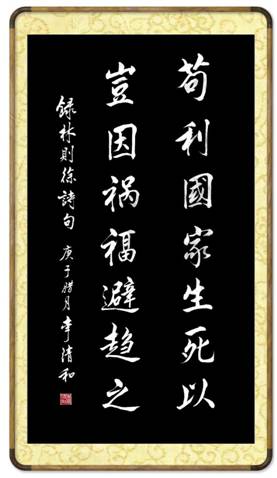 苟利國家生死以
豈因祸福避趋之
録林则徐詩句 庚子腊月李清和